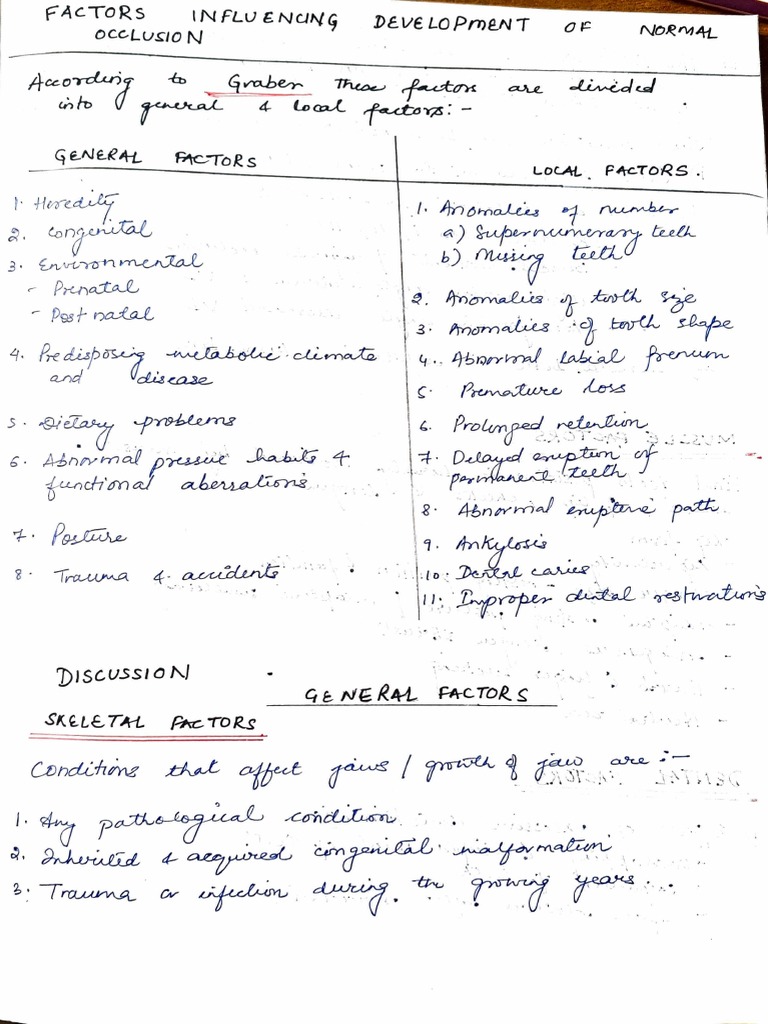 FACTORS INFLUENCING DEVELOPMENT OF NORMAL
OCCLUSION
According to Graber these factors are divided
into general & local factors:-
GENERAL FACTORS
1. Heredity
2. Congenital
3. Environmental
- Prenatal
- Post natal
4. Predisposing metabolic climate
and disease
5. Dietary problems
6. Abnormal pressure habits &
functional aberrations
7. Posture
8. Trauma & accidents
LOCAL FACTORS.
1. Anomalies of number
a) Supernumerary teeth
b) Missing teeth
2. Anomalies of tooth size
3. Anomalies of tooth shape
4. Abnormal labial frenum
5. Premature loss
6. Prolonged retention
7. Delayed eruption of
permanent teeth
8. Abnormal eruptive path
9. Ankylosis
10. Dental caries
11. Improper dental restorations
DISCUSSION
GENERAL FACTORS
SKELETAL FACTORS
Conditions that affect jaws / growth of jaw are :-
1. Any pathological condition
2. Inherited & acquired congenital malformation
3. Trauma or infection during the growing years.